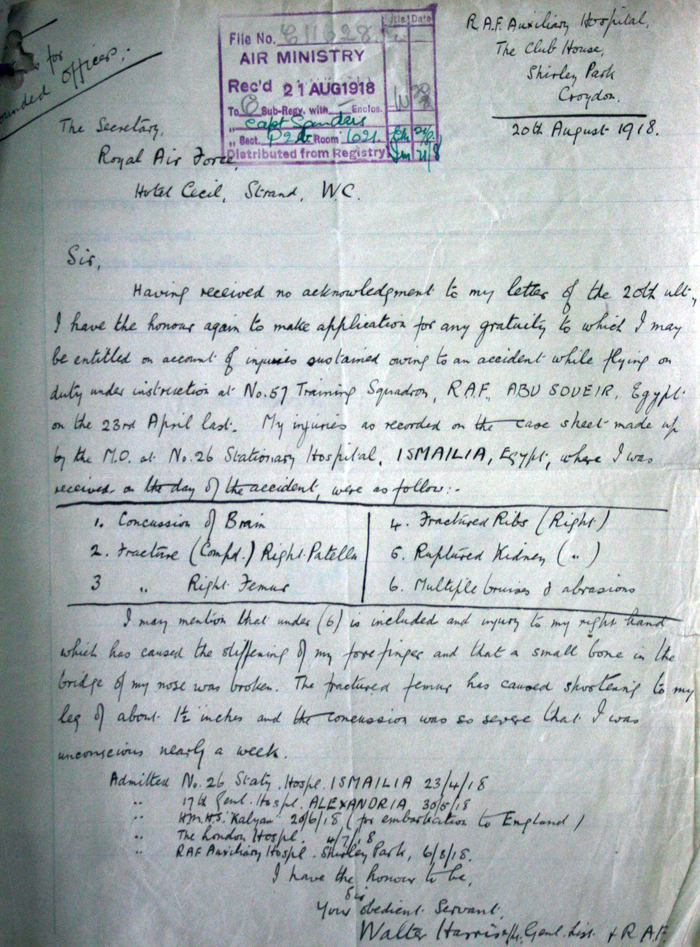 for
wounded officers.
File No.
Date
AIR MINISTRY
Rec'd 21 AUG 1918
To Sub-Regy. with Enclos.
" Capt Sanders
" Sect. Room 1021
Distributed from Registry
R.A.F. Auxiliary Hospital,
The Club House,
Shirley Park
Croydon.
20th August 1918.
The Secretary,
Royal Air Force,
Hotel Cecil, Strand, W.C.
Sir,
Having received no acknowledgment to my letter of the 20th ult.,
I have the honour again to make application for any gratuity to which I may
be entitled on account of injuries sustained owing to an accident while flying on
duty under instruction at No.57 Training Squadron, R.A.F., ABU SOUEIR, Egypt
on the 23rd April last. My injuries as recorded on the case sheet made up
by the M.O. at No.26 Stationary Hospital, ISMAILIA, Egypt, where I was
received on the day of the accident, were as follow:-
1. Concussion of Brain
2. Fracture (Compd.) Right Patella
3 " Right Femur
4. Fractured Ribs (Right)
5. Ruptured Kidney ( " )
6. Multiple bruises & abrasions
I may mention that under (6) is included and injury to my right hand
which has caused the stiffening of my forefinger and that a small bone in the
bridge of my nose was broken. The fractured femur has caused shortening to my
leg of about 1½ inches and the concussion was so severe that I was
unconscious nearly a week.
Admitted No. 26 Staty. Hospl. ISMAILIA 23/4/18
" 17th Genl. Hospl. ALEXANDRIA 30/5/18
" H.M.H.S. Kalyan 20/6/18 (for embarkation to England)
" The London Hospl. 4/7/18
" RAF Auxiliary Hospl. Shirley Park, 6/8/18.
I have the honour to be,
Sir,
Your obedient Servant,
Walter Harris Genl. List & R.A.F.